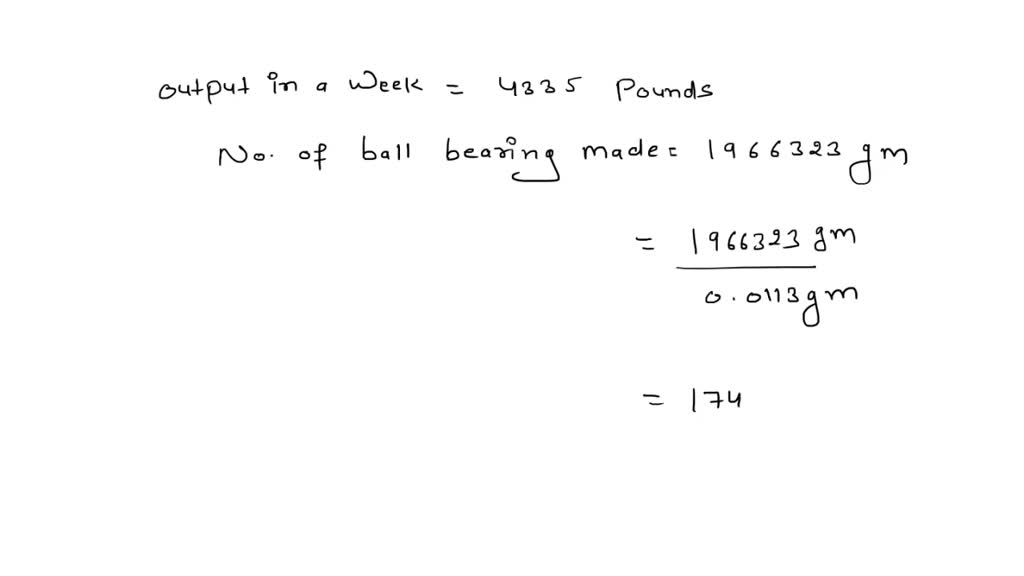 output in a week = 4335 Pounds
No. of ball bearing made = 1966323 gm
= 1966323 gm
0.0113 gm
= 174